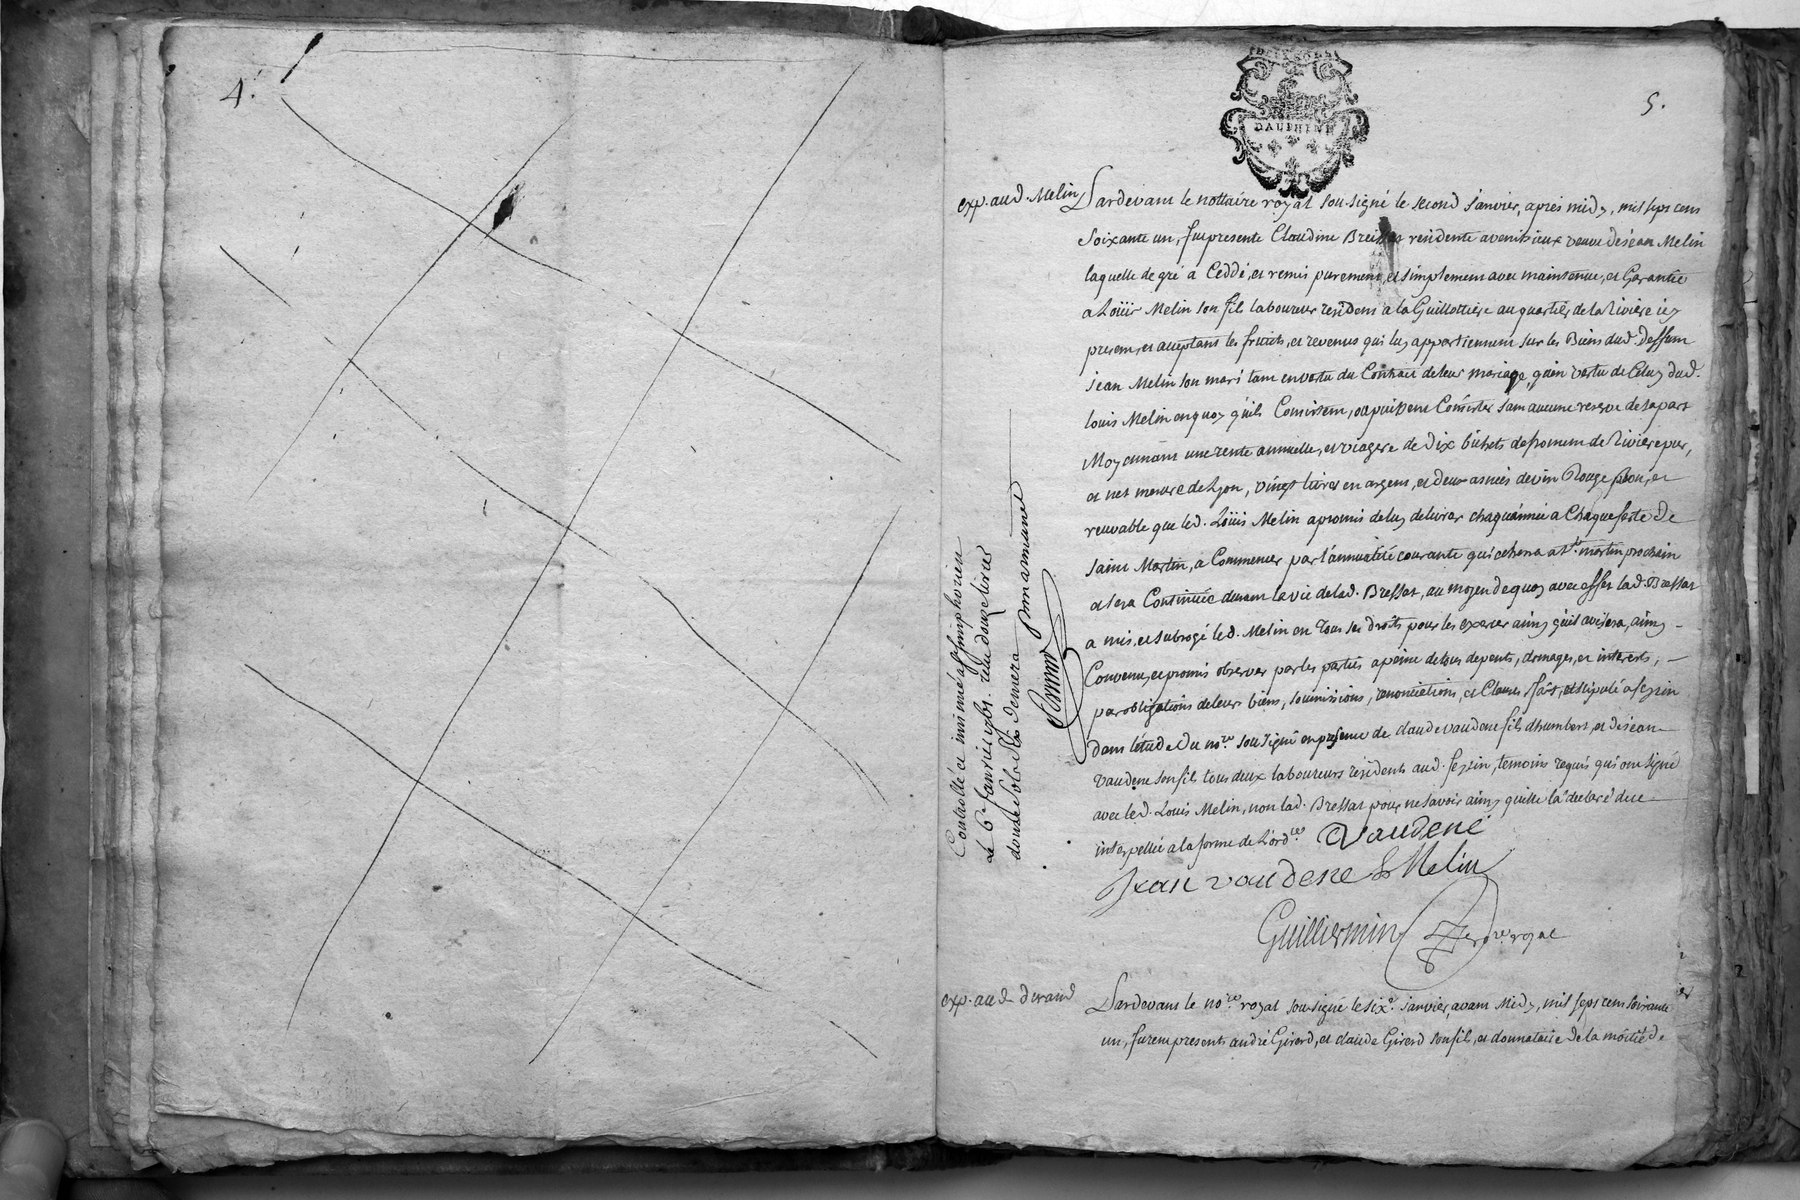 4.
5.
DAUPHINE
exp. aud. Melin
Pardevant le nottaire royal sousigné le second janvier, apres midy, mil sept cens
soixante un, fut presente Claudine Bressat residente a venissieux veuve de jean Melin
laquelle de gré a Ceddé, et remis purement, et simplement avec maintenue, et Garantie
a Loüis Melin son fils laboureur resident a la Guillottiere au quartier de la Riviere icy
present, et acceptant les fruits, et revenus qui luy appartiennent sur les Biens dud. deffunt
jean Melin son mari tant en vertu du Contract de leur mariage, qu'en vertu de Celuy dud.
louis Melin en quoy qu'ils Consistent, ou puissent Consister sans aucune reserve de sa part
Moyennant une rente annuelle, et viagere de dix bichets de froment de Riviere pur,
et net mesure de Lyon, vingt livres en argent, et deux asnées de vin Rouge bon, et
recevable que led. Loüis Melin a promis de luy delivrer chaque année a Chaque feste de
saint Martin, a Commencer par l'annualité courante qui echerra a St. martin prochain
et sera Continuée durant la vie de lad. Bressat, au moyen de quoy avec effet lad. Bressat
a mis, et subrogé led. Melin en tous ses droits pour les exercer ainsy qu'il avisera, ainsy
Convenu, et promis observer par les parties a peine de tous depents, domages, et interests,
par obligations de leurs biens, soumissions, renonciations, et Clauses fait, et stipulé a feyzin
dans l'étude du nore. sousigné en presence de claude vaudene fils d'humbert, et de jean
vaudene son fils tous deux laboureurs residents aud. feyzin, temoins requis qui ont signé
avec led. Louis Melin, non lad. Bressat pour ne savoir ainsy quelle la declaré de ce
interpellée a la forme de L'ordce.
Vaudene
Jean vaudene L Melin
Guillermin nore. royal
Controllé ci minuté a st simphorien
le 6e janvier 1761. reçu douze livres
douze sols
exp. aud. deraud
Pardevant le nore. royal sousigné le sixe. janvier, avant Midy, mil sept cens soixante
un, furent presents andré Girerd, et claude Girerd son fils, et donnataire de la moitié de